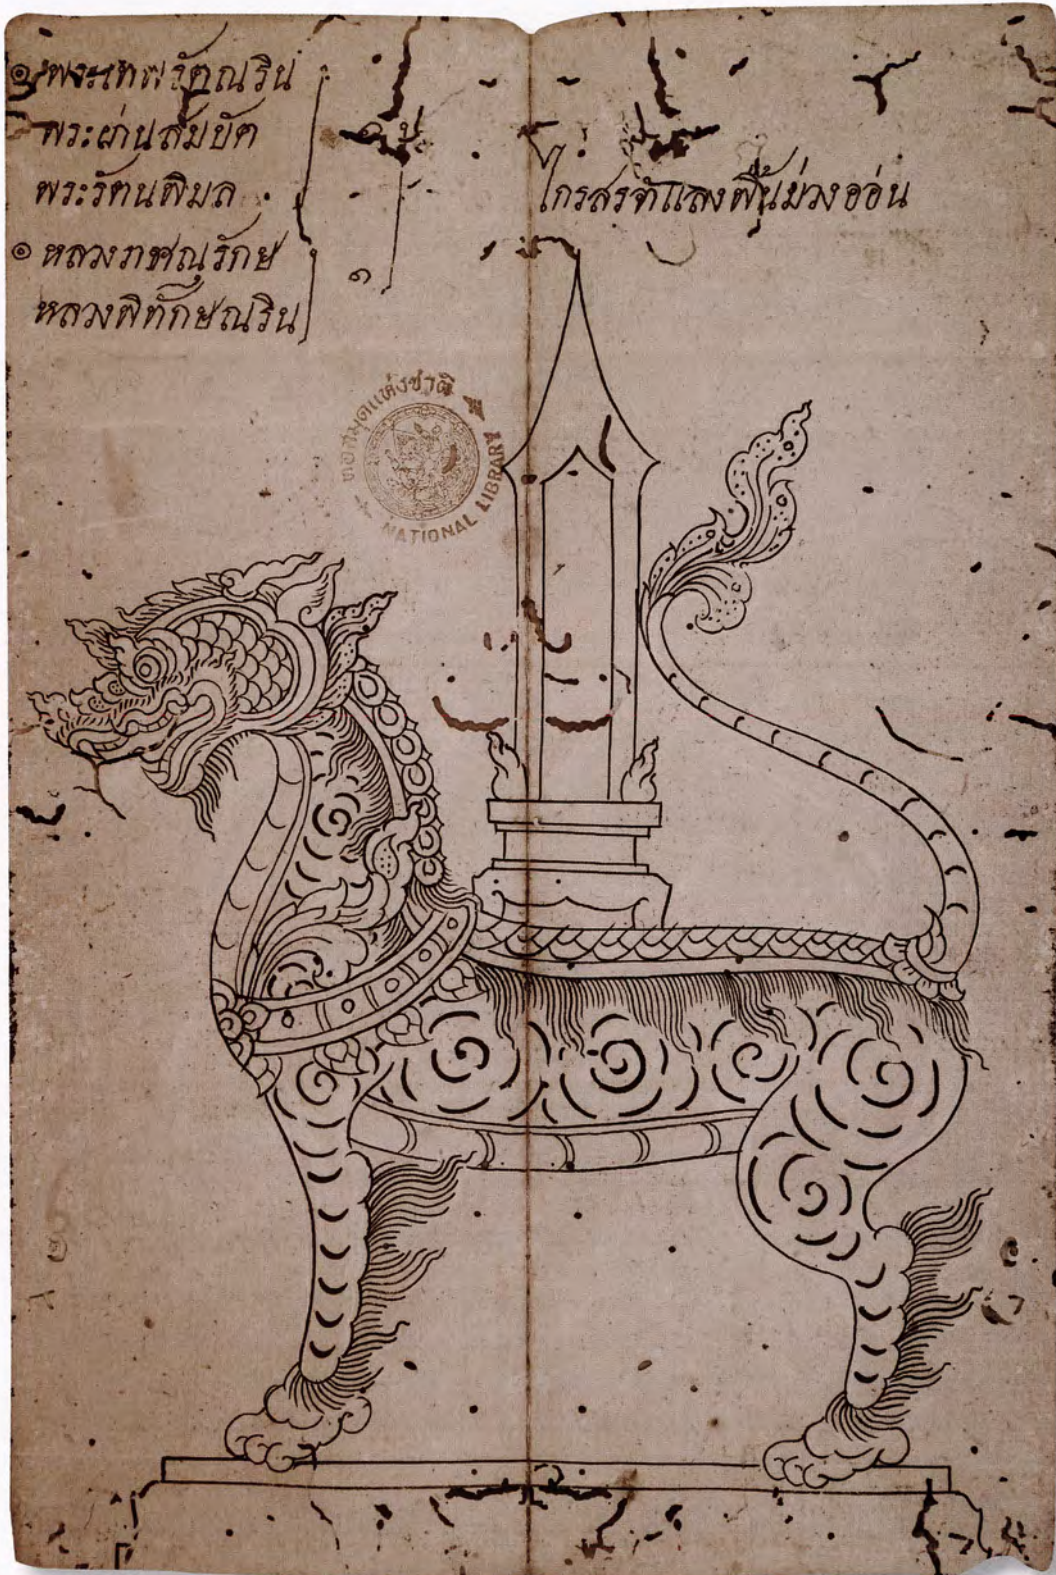 ๑ พระเทพรัตณริน
พระผ่านสมบัต
พระรัตนพิมล
๑ หลวงภชณุรักษ
หลวงพิทักษณริน
๑
ไกรสรจำแลงพื้นม่วงอ่อน
หอสมุดแห่งชาติ
NATIONAL LIBRARY